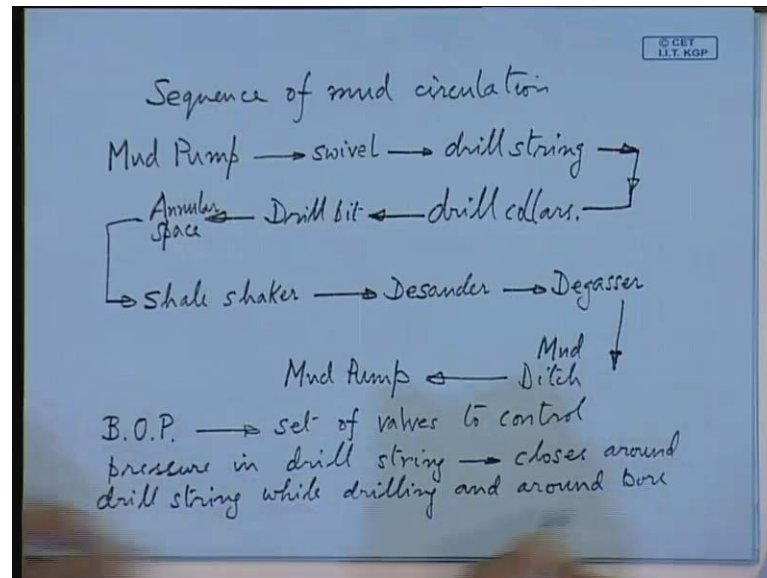 © CET
I.I.T. KGP
Sequence of mud circulation
Mud Pump → swivel → drill string →
Annular space ← Drill bit ← drill collars.
→ Shale shaker → Desander → Degasser
Mud Pump ← Mud Ditch
B.O.P. → set of valves to control
pressure in drill string → closes around
drill string while drilling and around bore